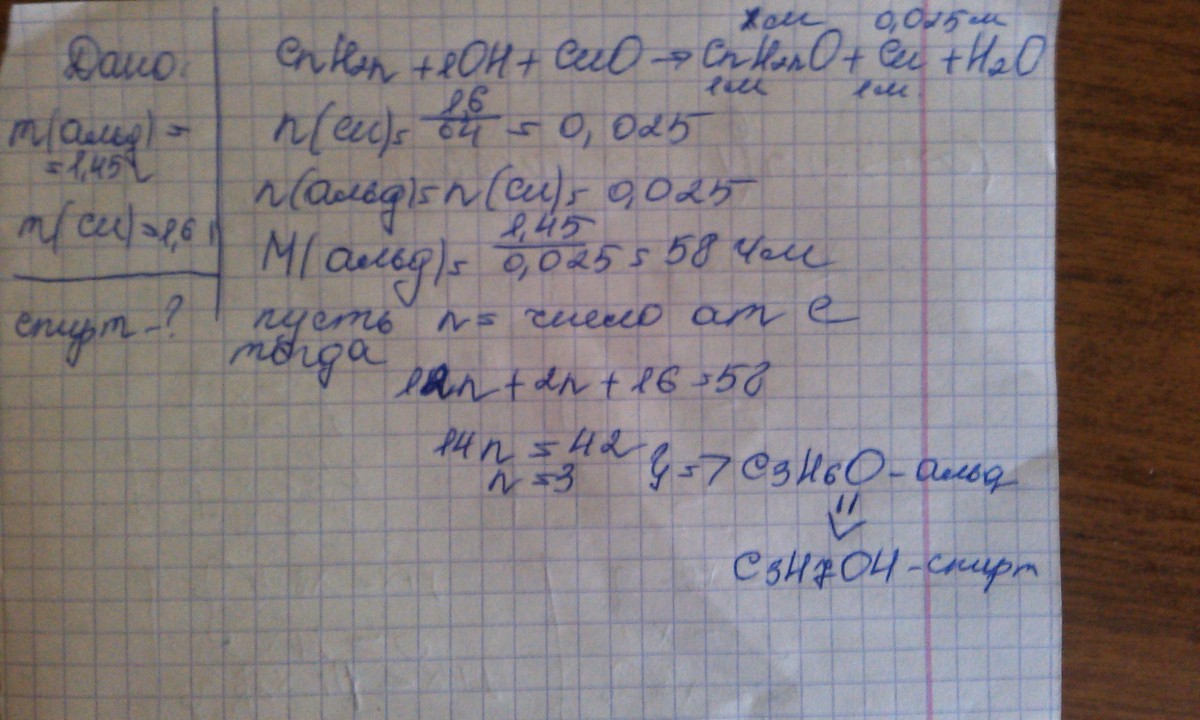 Дано:
m(альд)=
=1,45г
m(Cu)=1,6
спирт-?
xм 0,025м
CnH2n+1OH + CuO → CnH2nO + Cu + H2O
1м 1м
n(Cu)= 16/64 = 0,025
n(альд)=n(Cu)= 0,025
M(альд)= 1,45/0,025 = 58 г/м
пусть n= число ат C
тогда
12n + 2n + 16 = 58
14n = 42
n = 3 } => C3H6O - альд
C3H7OH - спирт